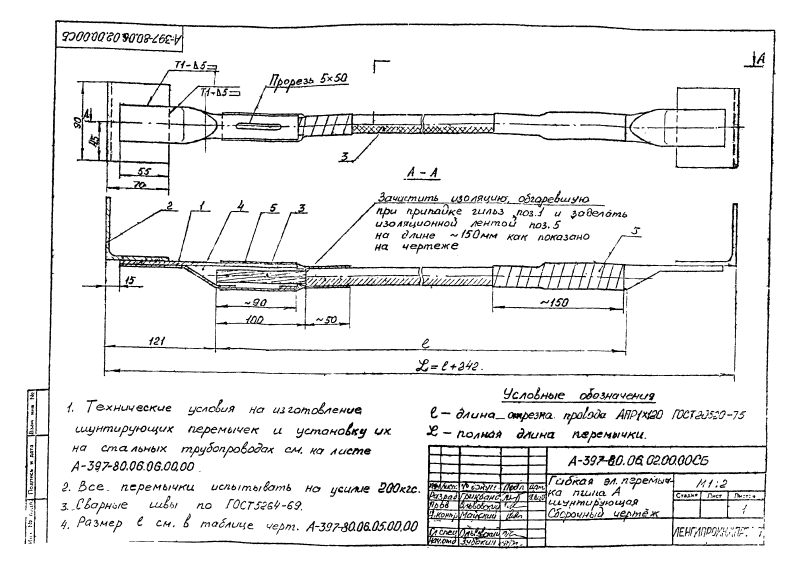 А-397-80.06.02.00.00СБ
Т1-Δ5
Т1-Δ5
Прорезь 5х50
А
А
90
45
55
70
3
А - А
2 1 4 5 3
Зачистить изоляцию, обгоревшую
при припайке гильз поз.1 и заделать
изоляционной лентой поз.5
на длине ~150мм как показано
на чертеже
5
15
~90
100
~50
~150
121
ℓ
L = ℓ + 242.
Условные обозначения
ℓ – длина отрезка провода АПР1х120 ГОСТ20520-75
L – полная длина перемычки.
1. Технические условия на изготовление
шунтирующих перемычек и установку их
на стальных трубопроводах см. на листе
А-397-80.06.06.00.00.
2. Все перемычки испытывать на усилие 200кгс.
3. Сварные швы по ГОСТ5264-69.
4. Размер ℓ см. в таблице черт. А-397-80.06.05.00.00
А-397-80.06.02.00.00СБ
Гибкая эл. перемыч-
ка типа А
шунтирующая
Сборочный чертёж
М1:2
Стадия Лист Листов
1
Разраб
Пров.
Т.контр
Гл спец
Нач.отд
Взам инв №
Подпись и дата